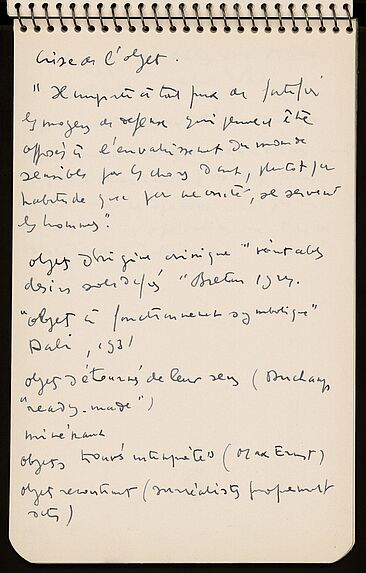 Crise de l'objet.
"Il importe à tout prix de fortifier
les moyens de défense qui peuvent être
opposés à l'envahissement du monde
sensible par les choses dont, plutôt par
habitude que par nécessité, se servent
les hommes".
objets d'origine onirique "véritables
désirs solidifiés" Breton 1924.
"objet à fonctionnement symbolique"
Dali, 1931
objets détournés de leur sens (Duchamp
"ready-made")
objets trouvés interprétés (Max Ernst)
objets (surréalistes proprement
dits)